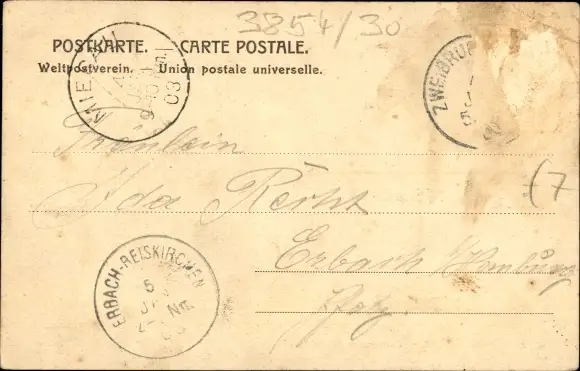 3854/30
POSTKARTE. CARTE POSTALE.
Weltpostverein. Union postale universelle.
MIESAU
03
ZWEIBRÜ
Fräulein
Ida
(7
Erbach
Pfz.
ERBACH-REISKIRCHEN
5
Nm.